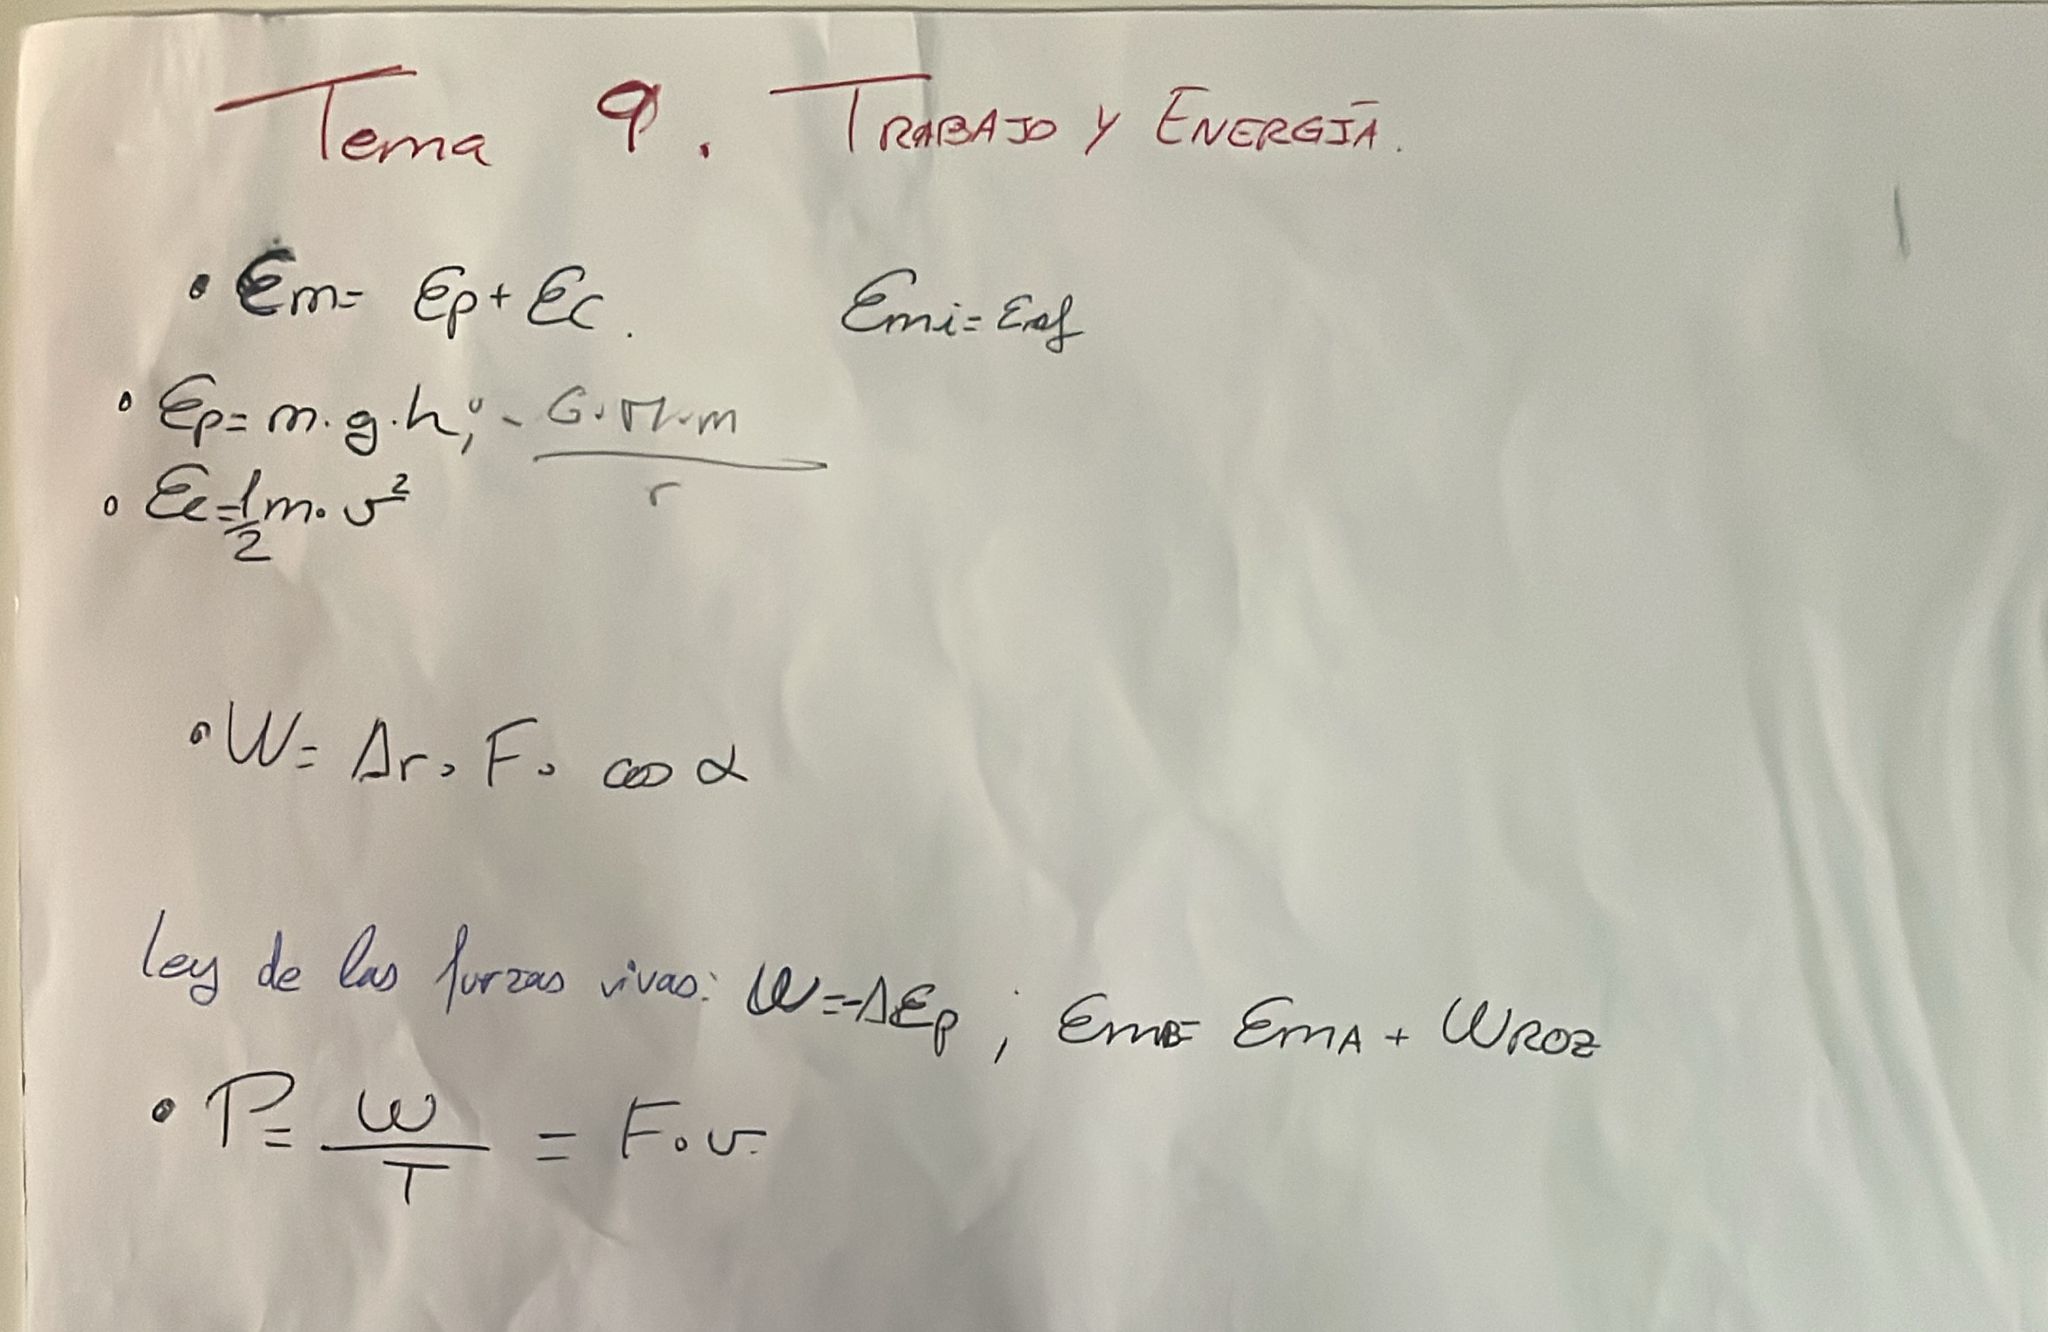 Tema 9. TRABAJO Y ENERGÍA.
• Em= Ep+ Ec. Emi= Emf
• Ep= m.g.h; - G.M.m / r
• Ec=1/2 m.v²
• W= Δr. F. cos α
ley de las furzas vivas: W=-ΔEp ; EmB= EmA + WROZ
• P= W/T = F.v.